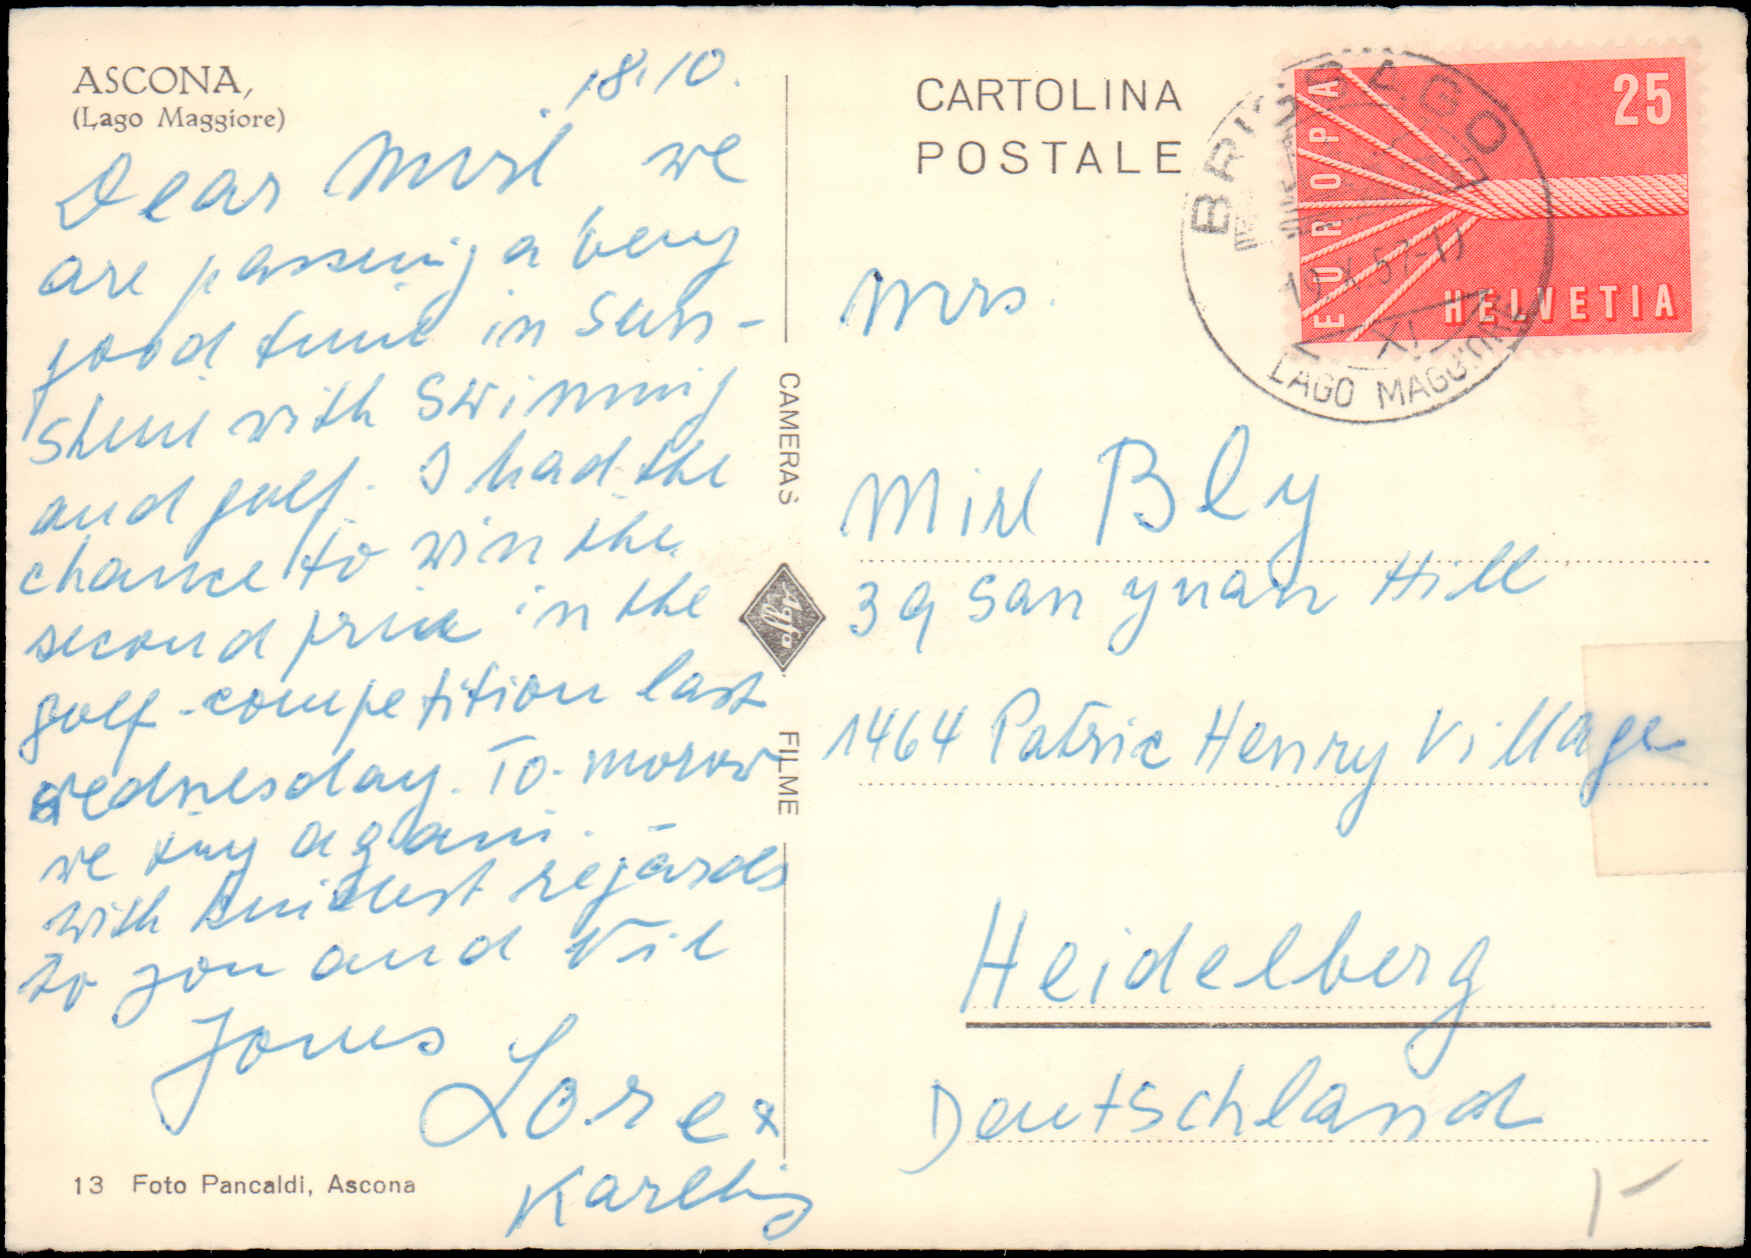 ASCONA,
(Lago Maggiore)
18.10.
Dear Mirl we
are passing a very
good time in Sun-
shine with Swimming
and golf. I had the
chance to win the
second price in the
golf-competition last
wednesday. To-morow
we try again.
with kindest regards
to you and Vic
Yours
Lore &
Karlheinz
13 Foto Pancaldi, Ascona
CAMERAS
Agfa
FILME
CARTOLINA
POSTALE
EUROPA
25
HELVETIA
BRISSAGO
LAGO MAGGIORE
Mrs.
Mirl Bly
39 San yuan Hill
1464 Patric Henry Village
Heidelberg
Deutschland
1-